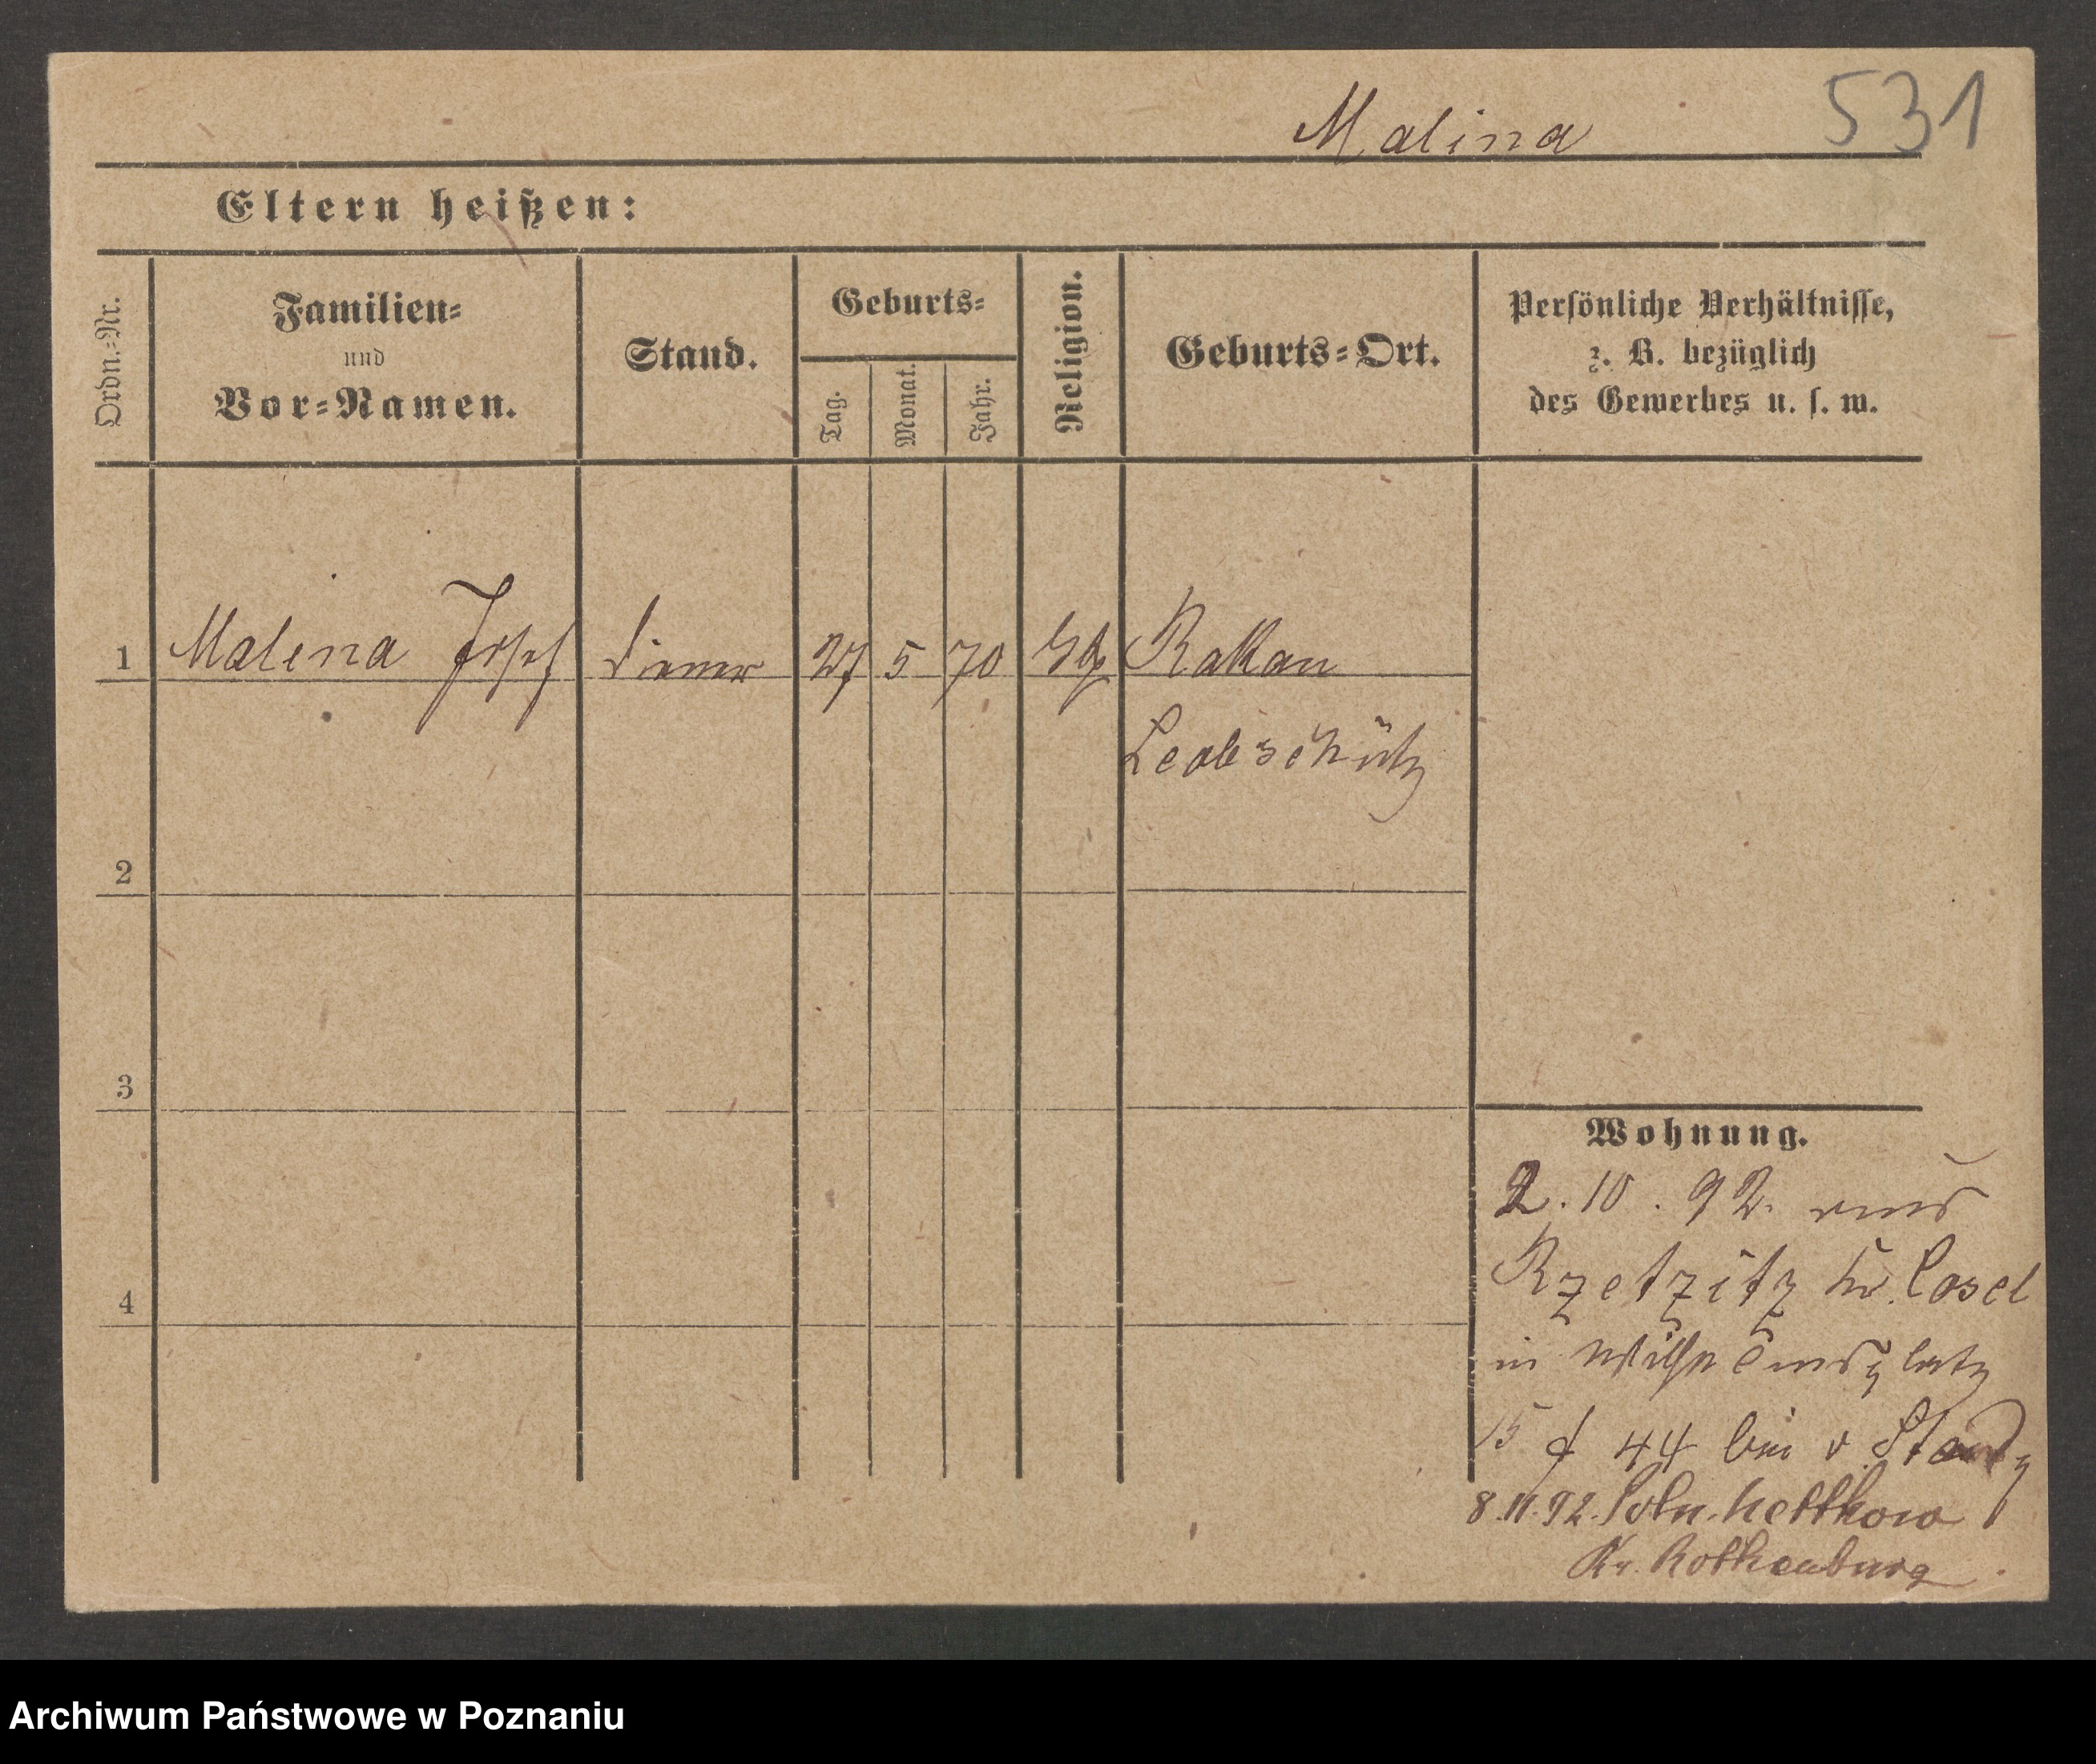 Malina
531
Eltern heißen:
Ordn.=Nr.
Familien=
und
Vor=Namen.
Stand.
Geburts=
Tag.
Monat.
Jahr.
Religion.
Geburts=Ort.
Persönliche Verhältnisse,
z. B. bezüglich
des Gewerbes u. s. w.
1 Malina Josef Diener 27 5 70 Rakau
Leobschütz
2
3
4
Wohnung.
2. 10. 92. aus
Rzetzitz Kr. Cosel
in Wilhelmsplatz
15 44 bei v
8. 11. 92. Poln. Nettkow
Kr. Rothenburg
Archiwum Państwowe w Poznaniu